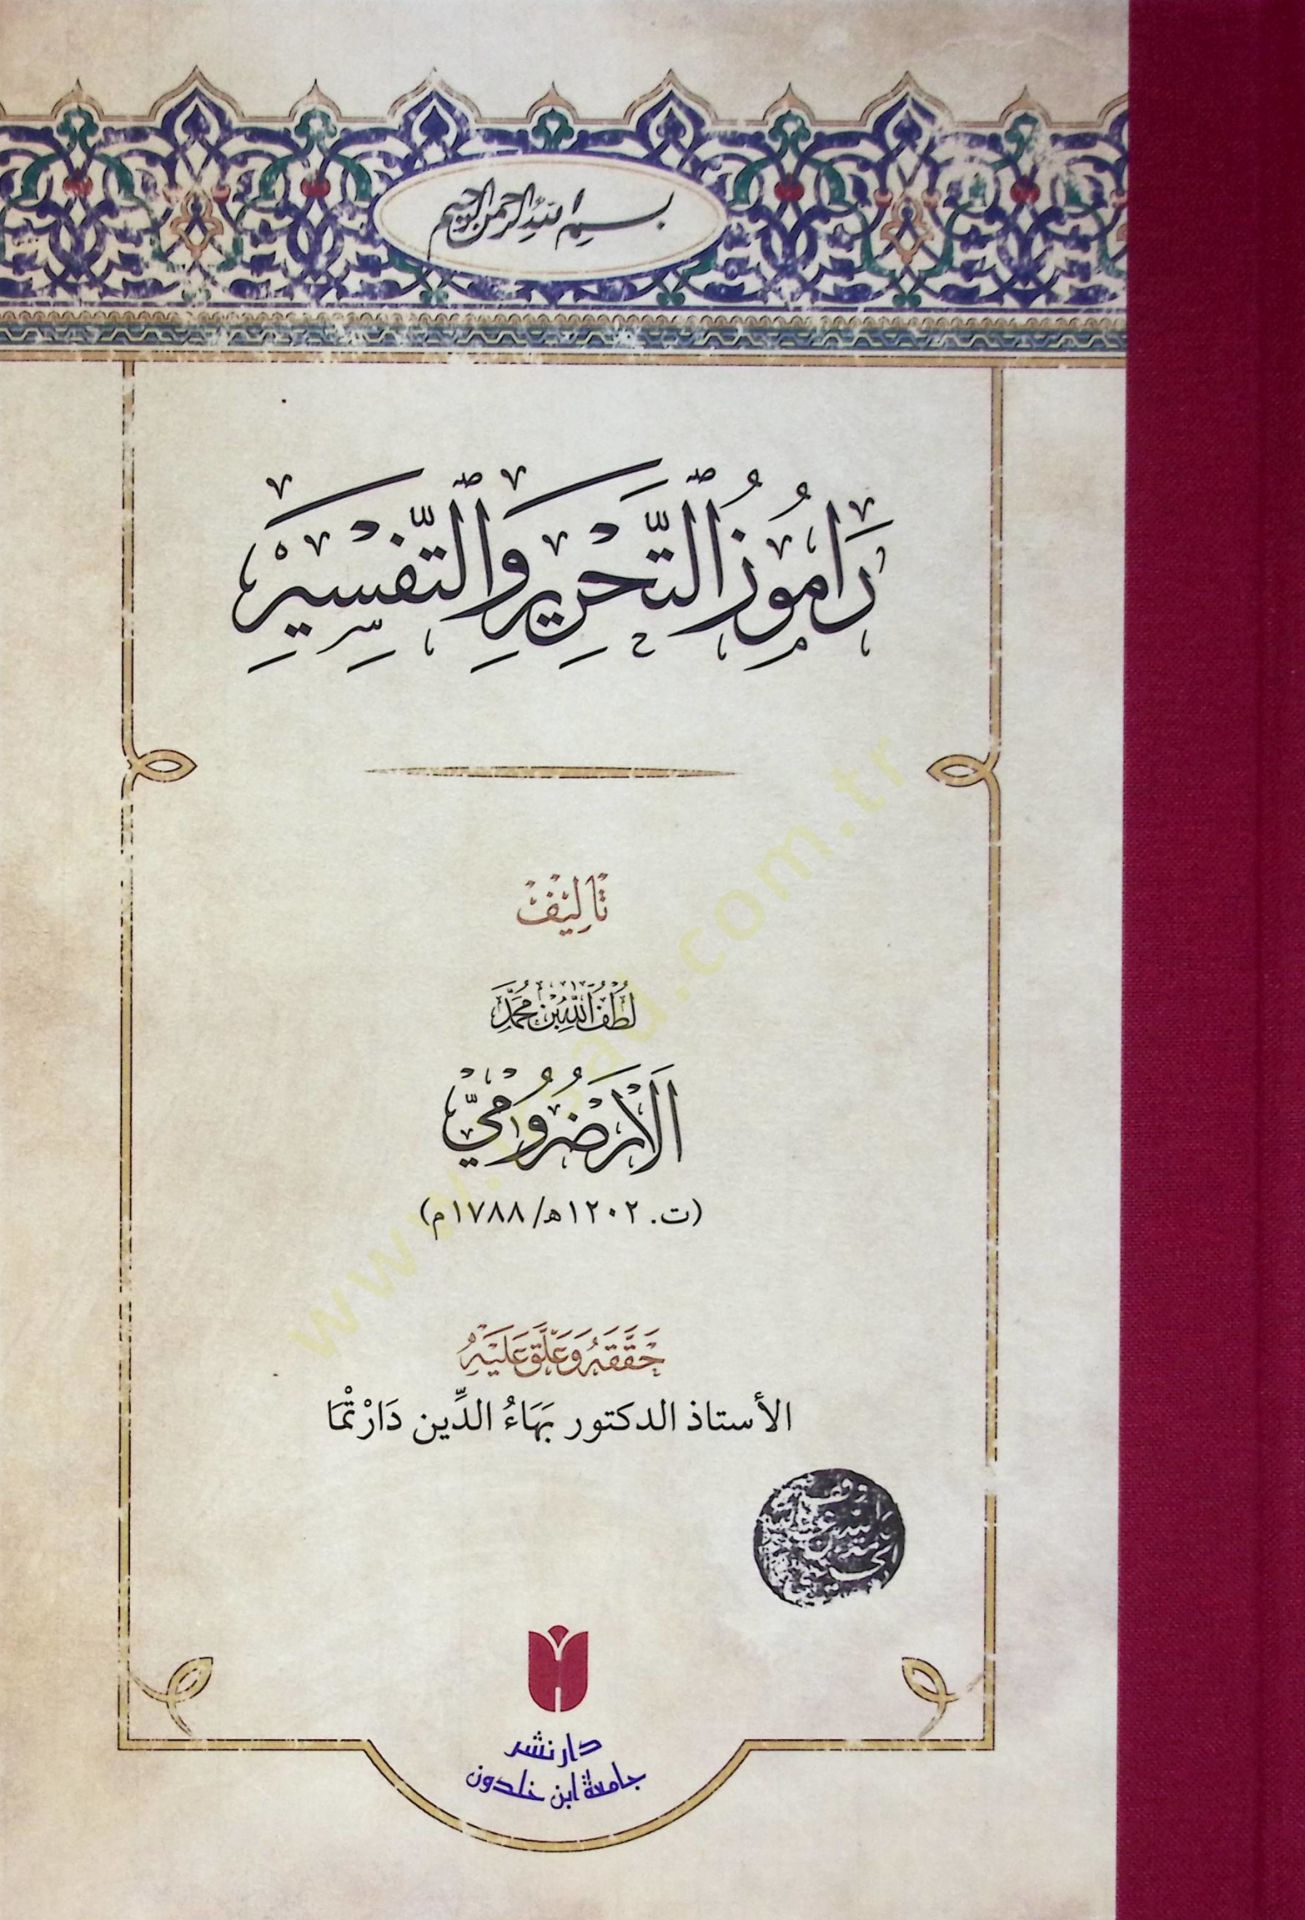 بسم الله الرحمن الرحيم
رَامُوزُ ٱلتَّحْرِيرِ وَٱلتَّفْسِيرِ
تَأْلِيفْ
لُطْفُ اللّٰهِ بْنُ مُحَمَّدٍ
الْأَرْضَرُومِيّ
(ت. ١٢٠٢هـ/ ١٧٨٨م)
حَقَّقَهُ وَعَلَّقَ عَلَيْهِ
الأستاذ الدكتور بَهَاءُ الدِّين دَارْتْمَا
دار نشر
جامعة ابن خلدون